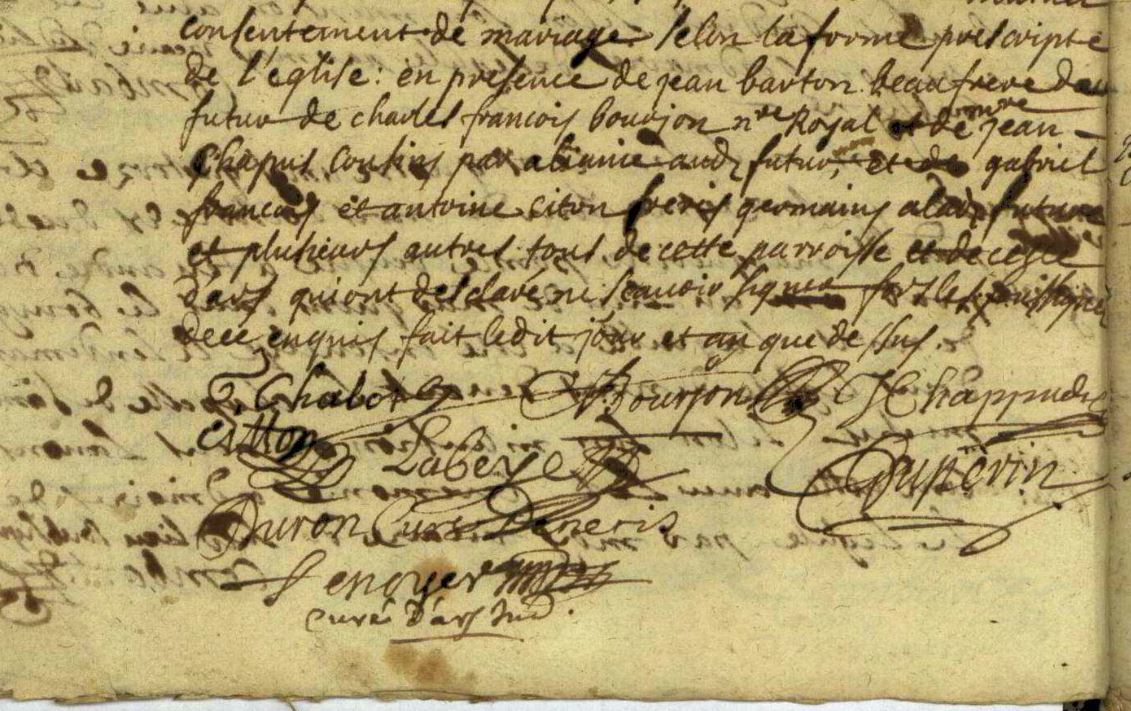 consentement de mariage selon la forme prescripte
de l'eglise : en presence de jean barton beaufrere du
futur de charles francois bourjon nre Royal et de jean
Chapuis cousins par aliance aud futur, et de gabriel
francois et antoine citon freres germains a lad future
et plusieurs autres tous de cette parroisse et de celle
dars qui ont desclaré ne scavoir signer fors les soussignés
de ce enquis fait ledit jour et an que dessus
Chabot Bourjon Chappuis
citton Labeye Duperin
Duron Curé
Genoyer
curé d'ars